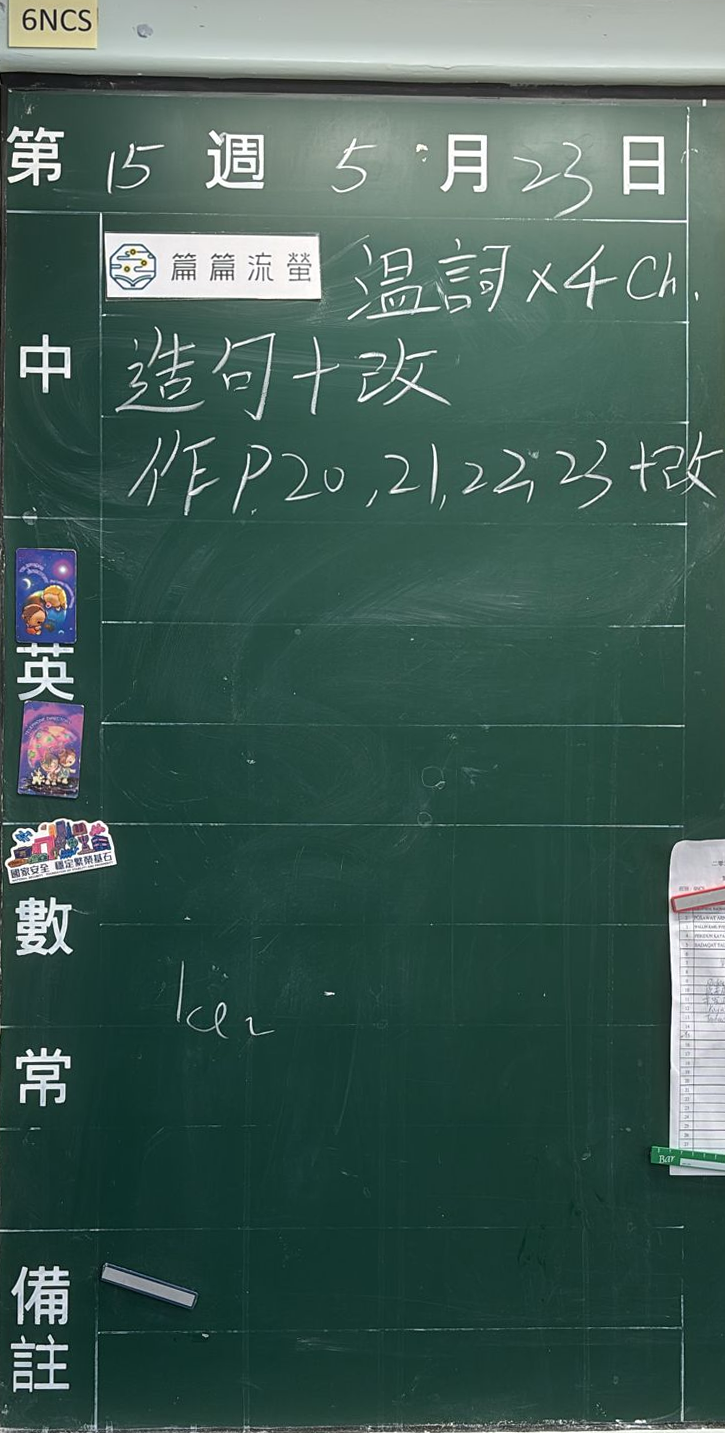 6NCS
第 15 週 5 月 23 日
中
篇篇流螢 溫詞 x4 Ch.
造句+改
作 P.20,21,22,23+改
英
國家安全 穩定繁榮基石
數
常
備註
Bar